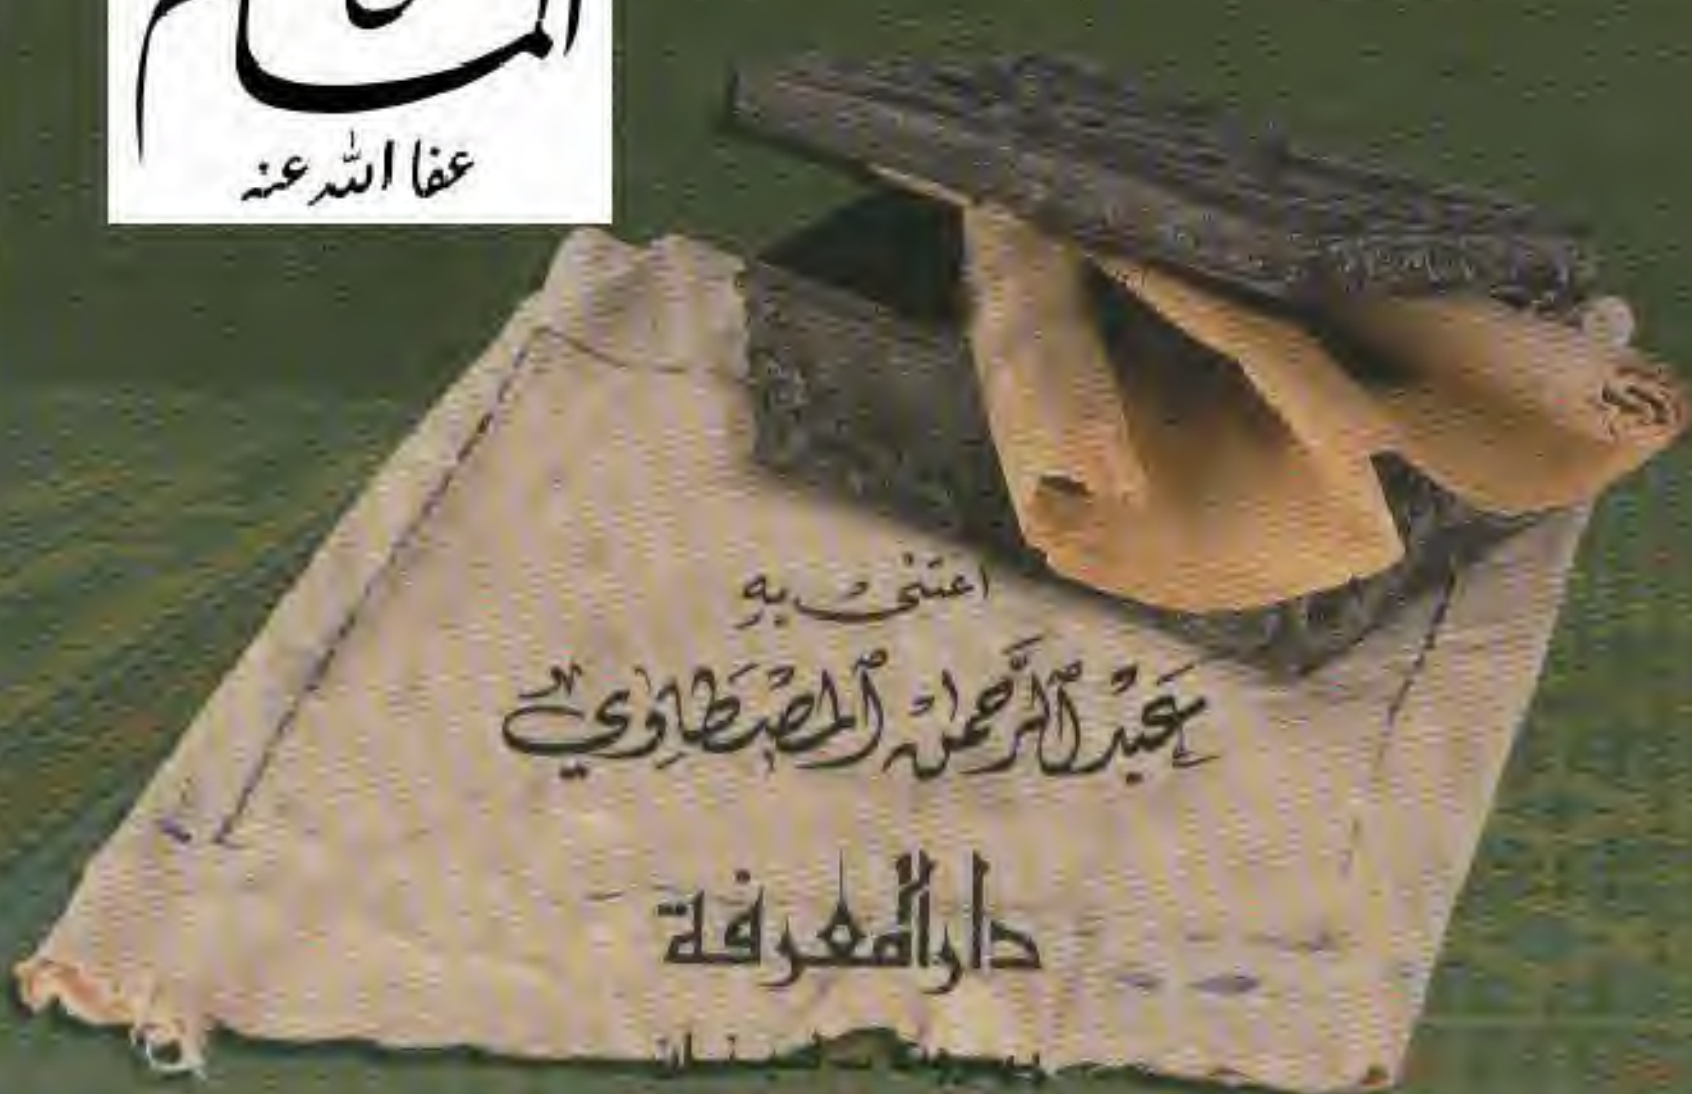 عفا الله عنه
اعتنى به
عَبْد الرَّحمن المصْطَاوي
دار المعرفة
بيروت - لبنان